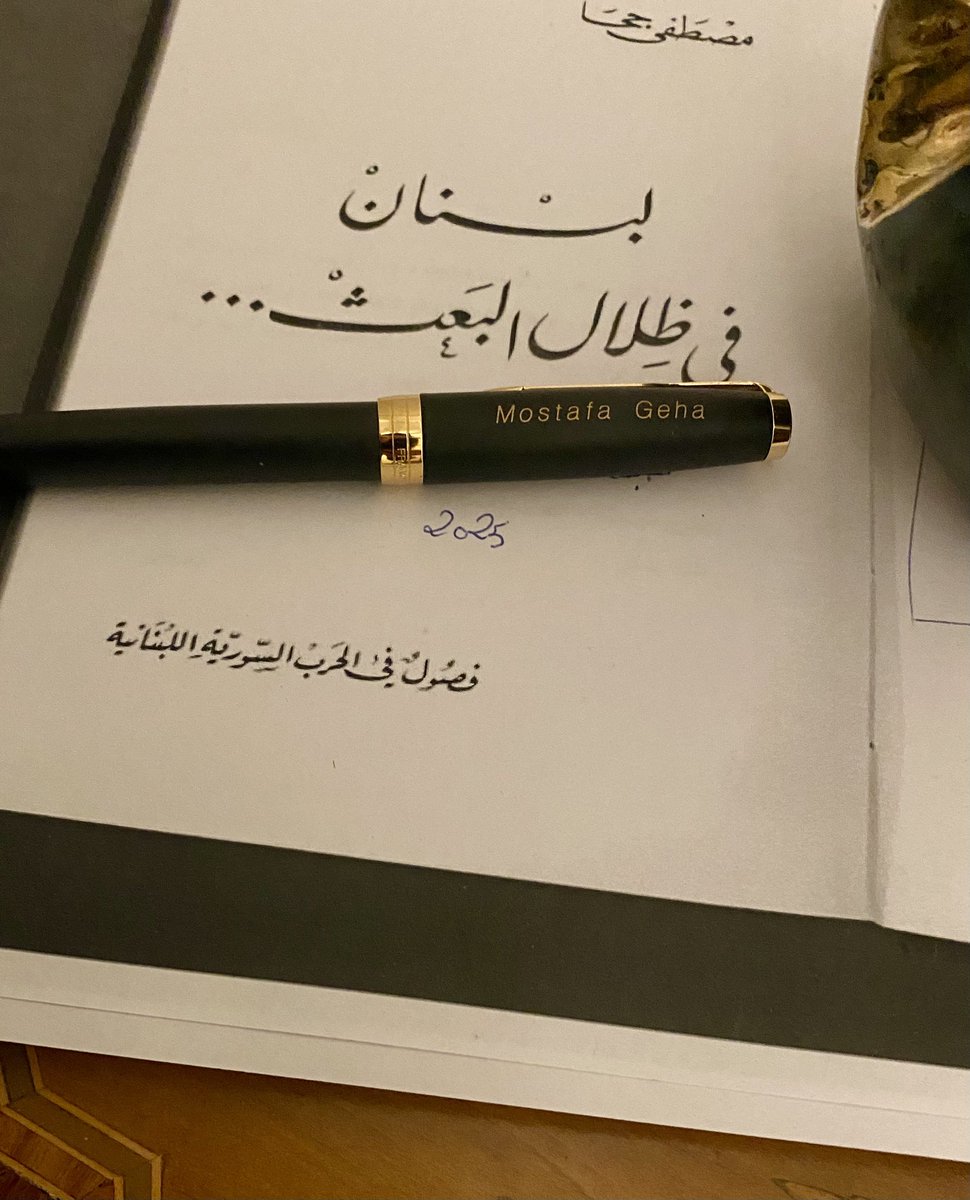 مصطفى جحا
لبْنانْ
في ظِلال البَعثْ...
Mostafa Geha
2025
فصُولٌ في الحَربْ السّوريّة اللبْنَانية